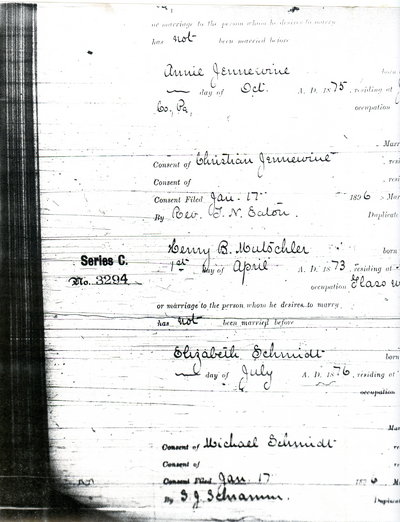 or marriage to the person whom he desires to marry
has not been married before
Annie Jennewine born
day of Oct. A. D. 1875, residing at
Co, Pa, occupation
Marr
Consent of Christian Jennewine resi
Consent of resi
Consent Filed Jan. 17 1896 Mar
By Rev. T. N. Eaton. Duplicate
Henry B. Mutschler born
Series C. 1st day of April A. D. 1873, residing at
No. 3294 occupation Glass w
or marriage to the person whom he desires to marry
has not been married before
Elizabeth Schmidt born
day of July A. D. 1876, residing
occupation
Mar
Consent of Michael Schmidt re
Consent of re
Consent Filed Jan. 17 1896 Mar
By S. J. Schramm. Duplicat